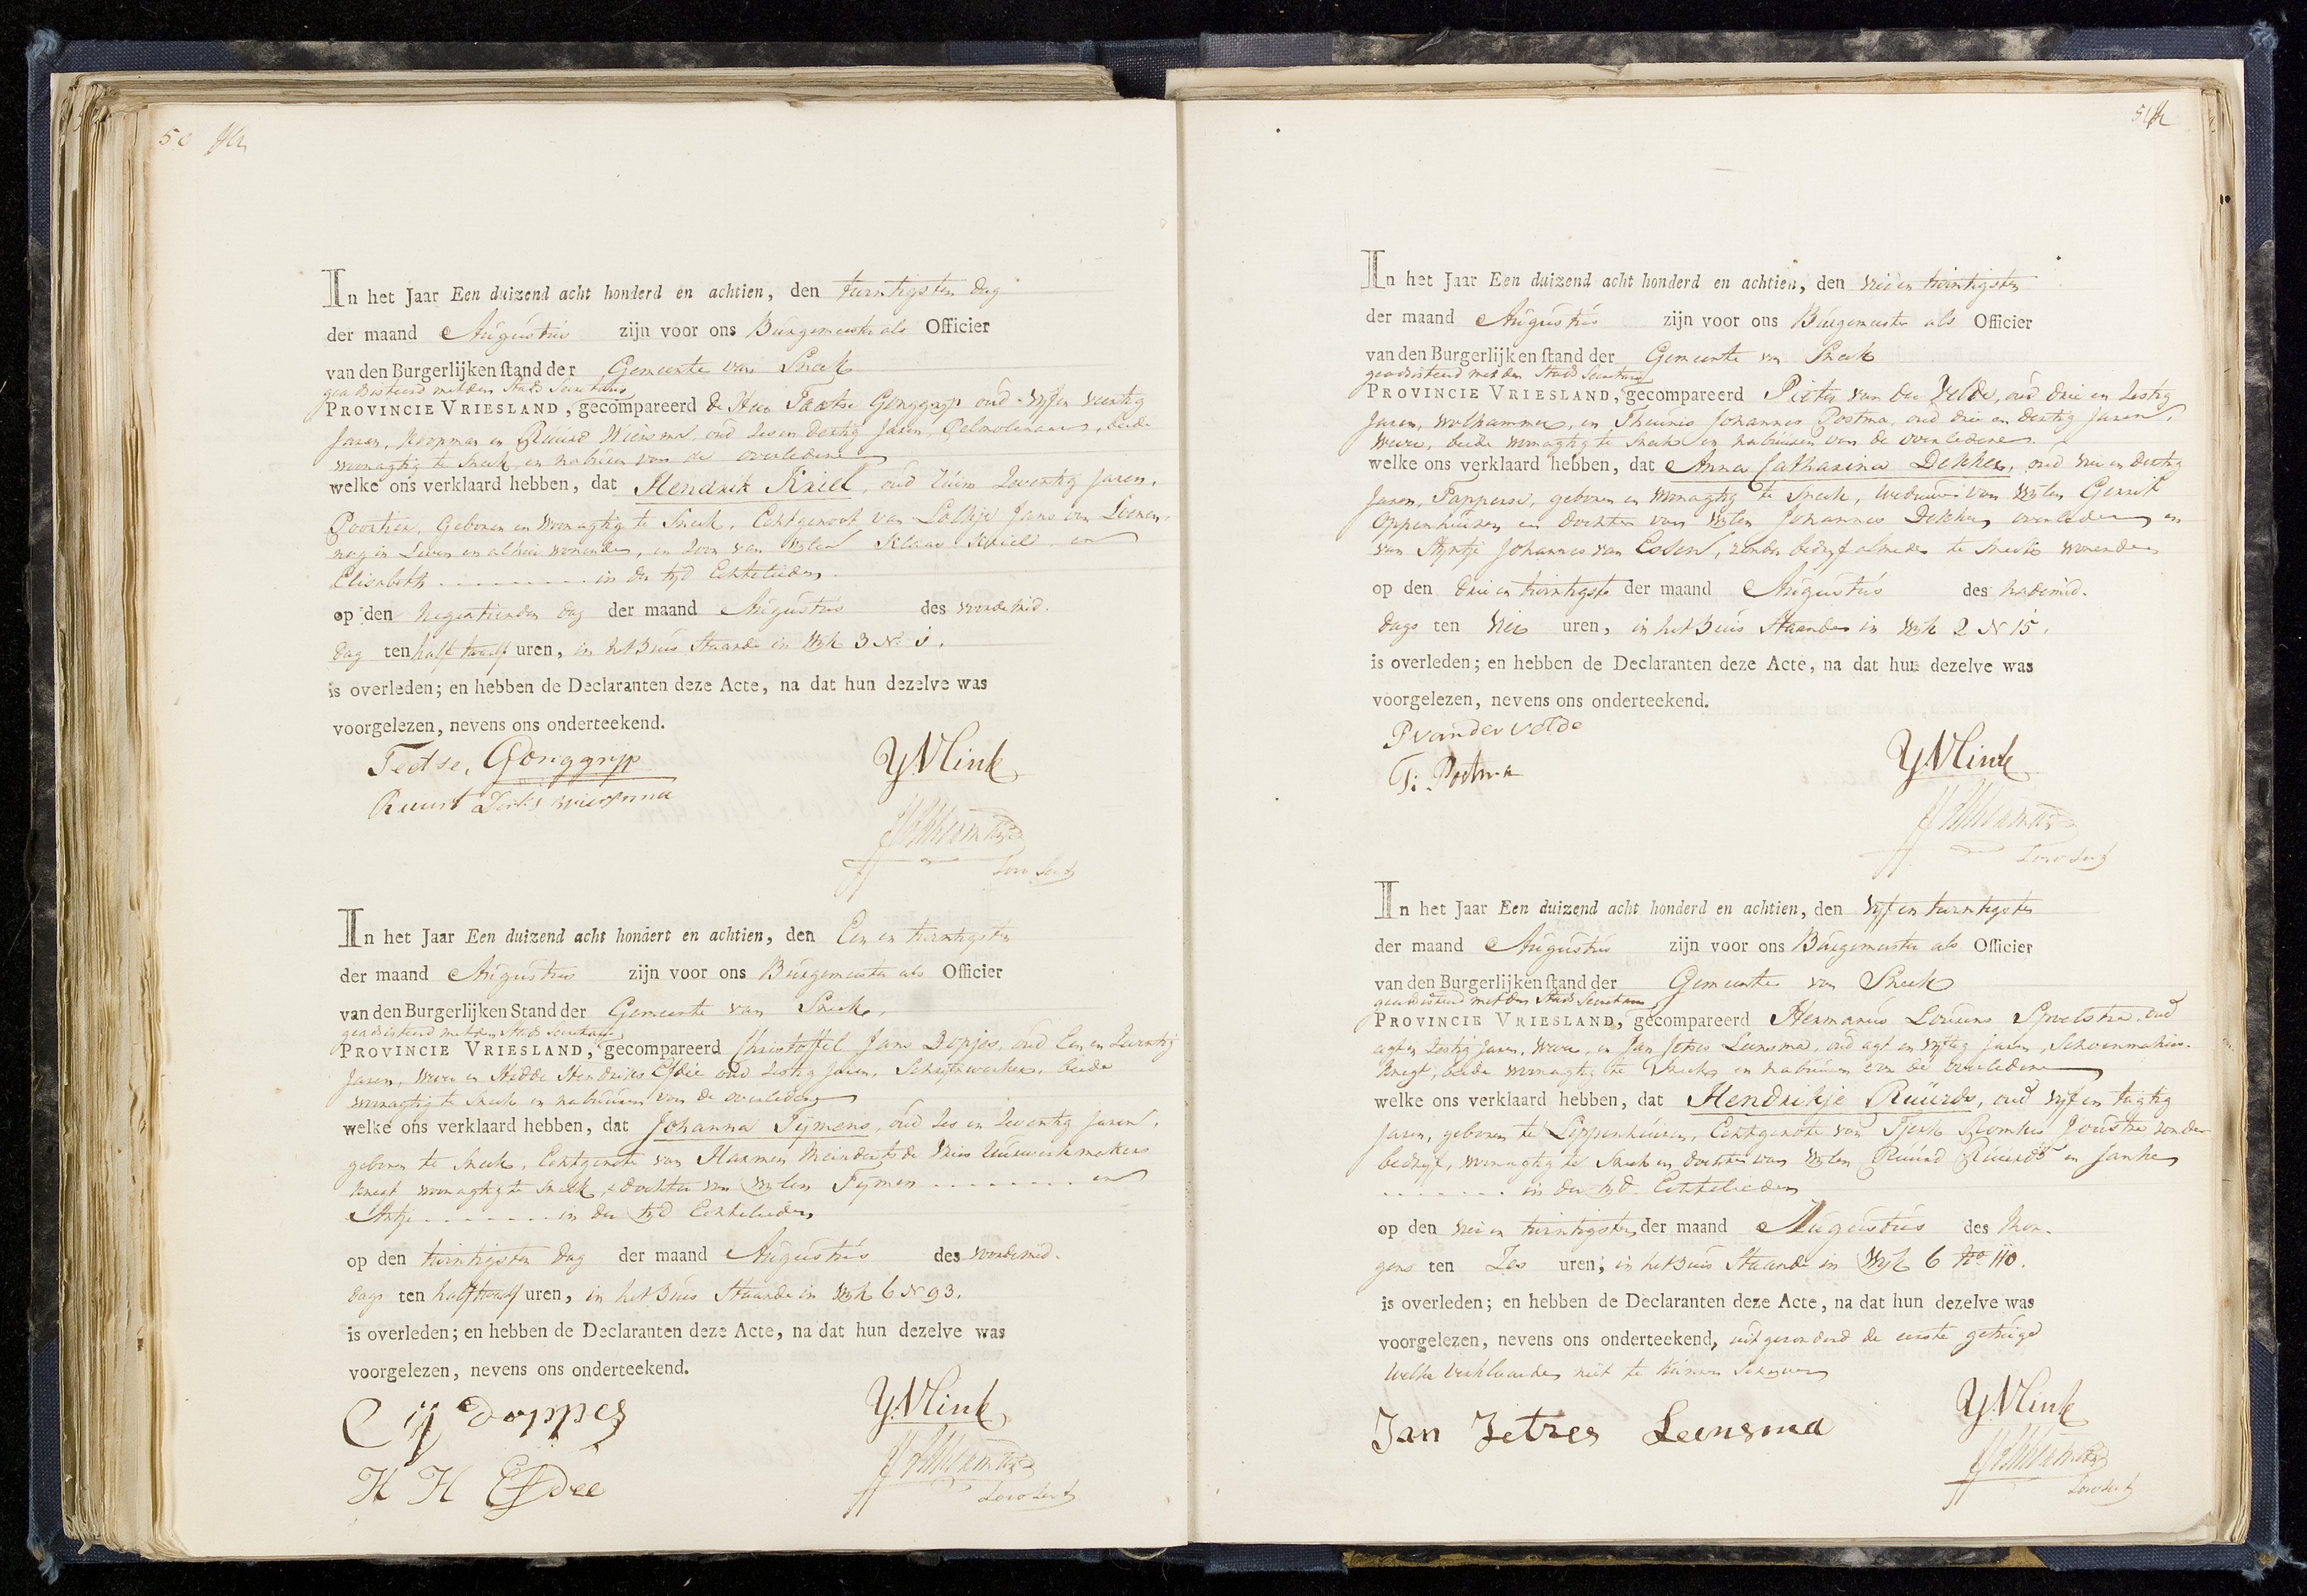 50
In het Jaar Een duizend acht honderd en achtien, den twintigsten dag
der maand Augustus zijn voor ons Burgemeester als Officier
van den Burgerlijken stand der Gemeente van Sneek
geadsisteerd met den Stads Secretaris
PROVINCIE VRIESLAND, gecompareerd de Heer Teetse Gonggrijp oud vijf en veertig
Jaren, Koopman en Ruurd Wiersma, oud Zes en dertig Jaren, Pelmolenaar, beide
woonagtig te Sneek, en naburen van de overledene
welke ons verklaard hebben, dat Hendrik Kriel, oud ruim Zeventig Jaren,
Poortier, Geboren en Woonagtig te Sneek, Echtgenoot van Jans van
nog in Leven en alhier wonende, en Zoon van wijlen Klaas Kriel en
Elisabeth ......... in der tijd Echtelieden
op den Negentienden dag der maand Augustus des voordemid-
dag ten half twaalf uren, in het Huis Staande in Wijk 3 No 1.
is overleden; en hebben de Declaranten deze Acte, na dat hun dezelve was
voorgelezen, nevens ons onderteekend.
Teetse Gonggrijp YMink
Ruurd Wiersma
Loco Secrt
In het Jaar Een duizend acht hondert en achtien, den Een en twintigsten
der maand Augustus zijn voor ons Burgemeester als Officier
van den Burgerlijken Stand der Gemeente van Sneek,
geadsisteerd met den Stads Secretaris
PROVINCIE VRIESLAND, gecompareerd Christoffel Jans Dopjes, oud Een en Zeventig
Jaren, Wever en Hedde Hendriks Esdee oud Zestig Jaren, beide
woonagtig te Sneek en naburen van de overledene
welke ons verklaard hebben, dat Johanna Tymens, oud Zes en Zeventig Jaren,
geboren te Sneek, Echtgenote van Harmen Meinderts de Vries Uurwerkmakers
knegt woonagtig te Sneek, dochter van wijlen Tymen ........ en
Antje ........ in der tijd Echtelieden
op den twintigsten dag der maand Augustus des voordemid-
dags ten half twaalf uren, in het Huis Staande in Wijk 6 N 93.
is overleden; en hebben de Declaranten deze Acte, na dat hun dezelve was
voorgelezen, nevens ons onderteekend.
C ij Doppes YMink
H H Esdee
Loco Secrt
51
In het Jaar Een duizend acht honderd en achtien, den vier en twintigsten
der maand Augustus zijn voor ons Burgemeester als Officier
van den Burgerlijken stand der Gemeente van Sneek
geadsisteerd met den Stads Secretaris
PROVINCIE VRIESLAND, gecompareerd Pieter van der Velde, oud drie en Zestig
Jaren, Wolkammer, en Theunis Johannes Postma, oud drie en dertig Jaren,
Wever, beide woonagtig te Sneek en naburen van de overledene
welke ons verklaard hebben, dat Anna Catharina Dekker, oud vier en dertig
Jaren, Tapperse, geboren en woonagtig te Sneek, weduwe van wijlen Gerrit
Oppenhuizen en dochter van wijlen Johannes Dekker, overleden en
van Johannes van Eesen, zonder bedrijf almede te Sneek wonende
op den drie en twintigste der maand Augustus des nademid-
dags ten vier uren, in het Huis Staande in Wijk 2 N 15.
is overleden; en hebben de Declaranten deze Acte, na dat hun dezelve was
voorgelezen, nevens ons onderteekend.
P van der velde YMink
T: Postma
Loco Secrt
In het Jaar Een duizend acht honderd en achtien, den vijf en twintigsten
der maand Augustus zijn voor ons Burgemeester als Officier
van den Burgerlijken stand der Gemeente van Sneek
geadsisteerd met den Stads Secretaris
PROVINCIE VRIESLAND, gecompareerd Hermanus Lourens Sproelstra oud
agt en Zestig Jaren, Wever, en Jan Jetses Leensma, oud agt en vijftig Jaren, Schoenmakers-
knegt, beide woonagtig te Sneek en naburen van de overledene
welke ons verklaard hebben, dat Hendrikje Ruurds, oud vijf en tagtig
Jaren, geboren te Lippenhuizen, Echtgenote van Tjerk Romkes Joustra zonder
bedrijf, woonagtig te Sneek en dochter van wijlen Ruurd Ruurds en Janke
....... in der tijd Echtelieden
op den vier en twintigsten der maand Augustus des mor-
gens ten Zes uren; in het Huis Staande in Wijk 6 No 110.
is overleden; en hebben de Declaranten deze Acte, na dat hun dezelve was
voorgelezen, nevens ons onderteekend, uitgezonderd de eerste getuige
welke verklaarde niet te kunnen Schryven
Jan Jetzes Leensma YMink
Loco Secrt